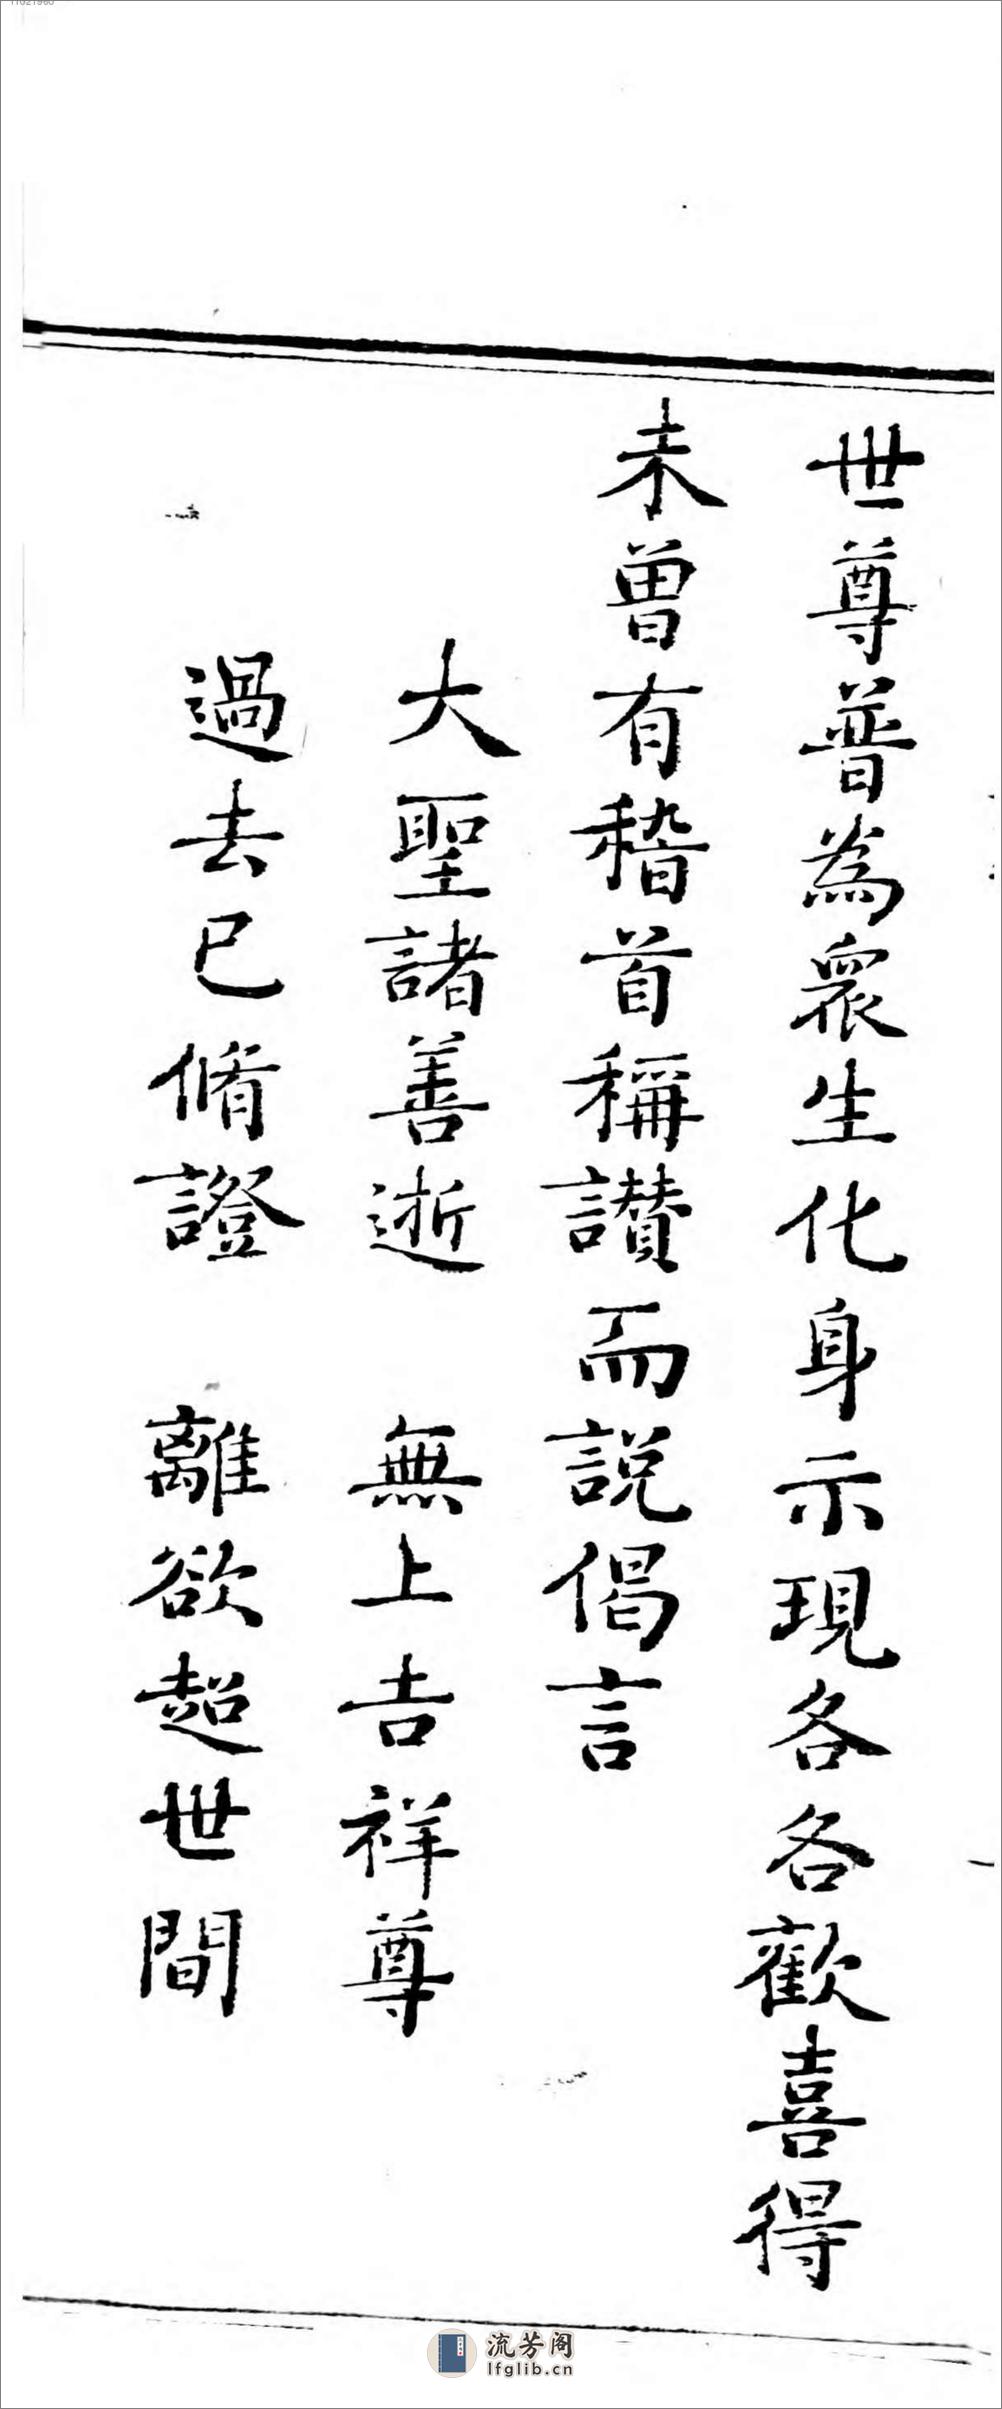 世尊普為衆生化身示現各各歡喜得
未曾有稽首稱讚而說偈言
大聖諸善逝　無上吉祥尊
過去已脩證　離欲超世間
流芳阁
lfglib.cn